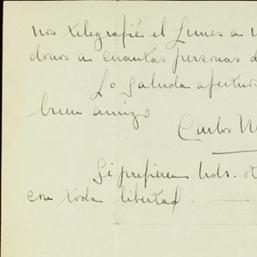 nos telegrafié el Lunes a
donos a cuantas personas d
Lo saluda afectuos
buen amigo
Carlos
Si prefieren Uds. ot
con toda libertad.